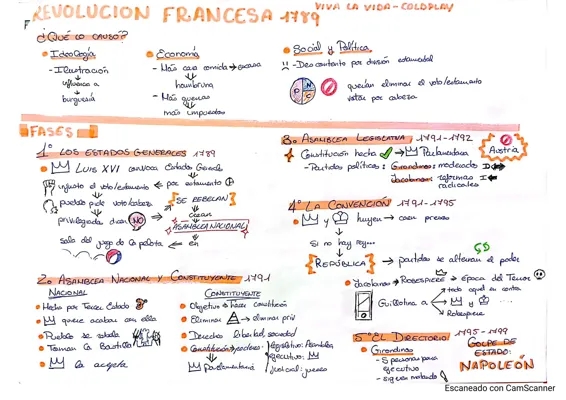 REVOLUCION FRANCESA 1789
VIVA LA VIDA - COLDPLAY
¿Qué lo causó?
• Ideología
- Ilustración
influencia a
burguesía
• Economía
- Más cara comida → escasa
hambruna
- Más guerras
más impuestos
• Social y Política
- Descontento por división estamental
P N C
querían eliminar el voto/estamento
votar por cabeza
FASES
1º LOS ESTADOS GENERALES 1789
LUIS XVI convoca Estados Generales
injusto el voto/estamento ← por estamento
pueblo pide voto/cabeza
privilegiados dicen NO
SE REBELAN
crean
ASAMBLEA NACIONAL
Sala del juego de la pelota ← en
2º ASAMBLEA NACIONAL Y CONSTITUYENTE 1791
NACIONAL
• Hecha por Tercer Estado
• quiere acabar con ella
• Pueblo se rebela
• Toman la Bastilla
• la acepta
CONSTITUYENTE
• Objetivo → hacer constitución
• Eliminar → eliminar priv
• Derechos libertad, sociedad
• Constitución → poderes
legislativo: Asamblea
ejecutivo:
judicial: jueces
Parlamentaria
3º ASAMBLEA LEGISLATIVA 1791-1792
Constitución hecha → Parlamentaria
Austria
- Partidos políticos: Girondinos: moderados
Jacobinos: reformas
radicales
4º LA CONVENCIÓN 1791-1795
• y huyen → caen presos
Si no hay rey...
REPÚBLICA → partidos se alternan el poder
• Jacobinos → ROBESPIERRE → época del Terror
todo aquel en contra
Guillotina a y
Robespierre
5º EL DIRECTORIO 1795-1799
• Girondinos
- 5 personas para
ejecutivo
GOLPE DE
ESTADO:
NAPOLEÓN
Escaneado con CamScanner